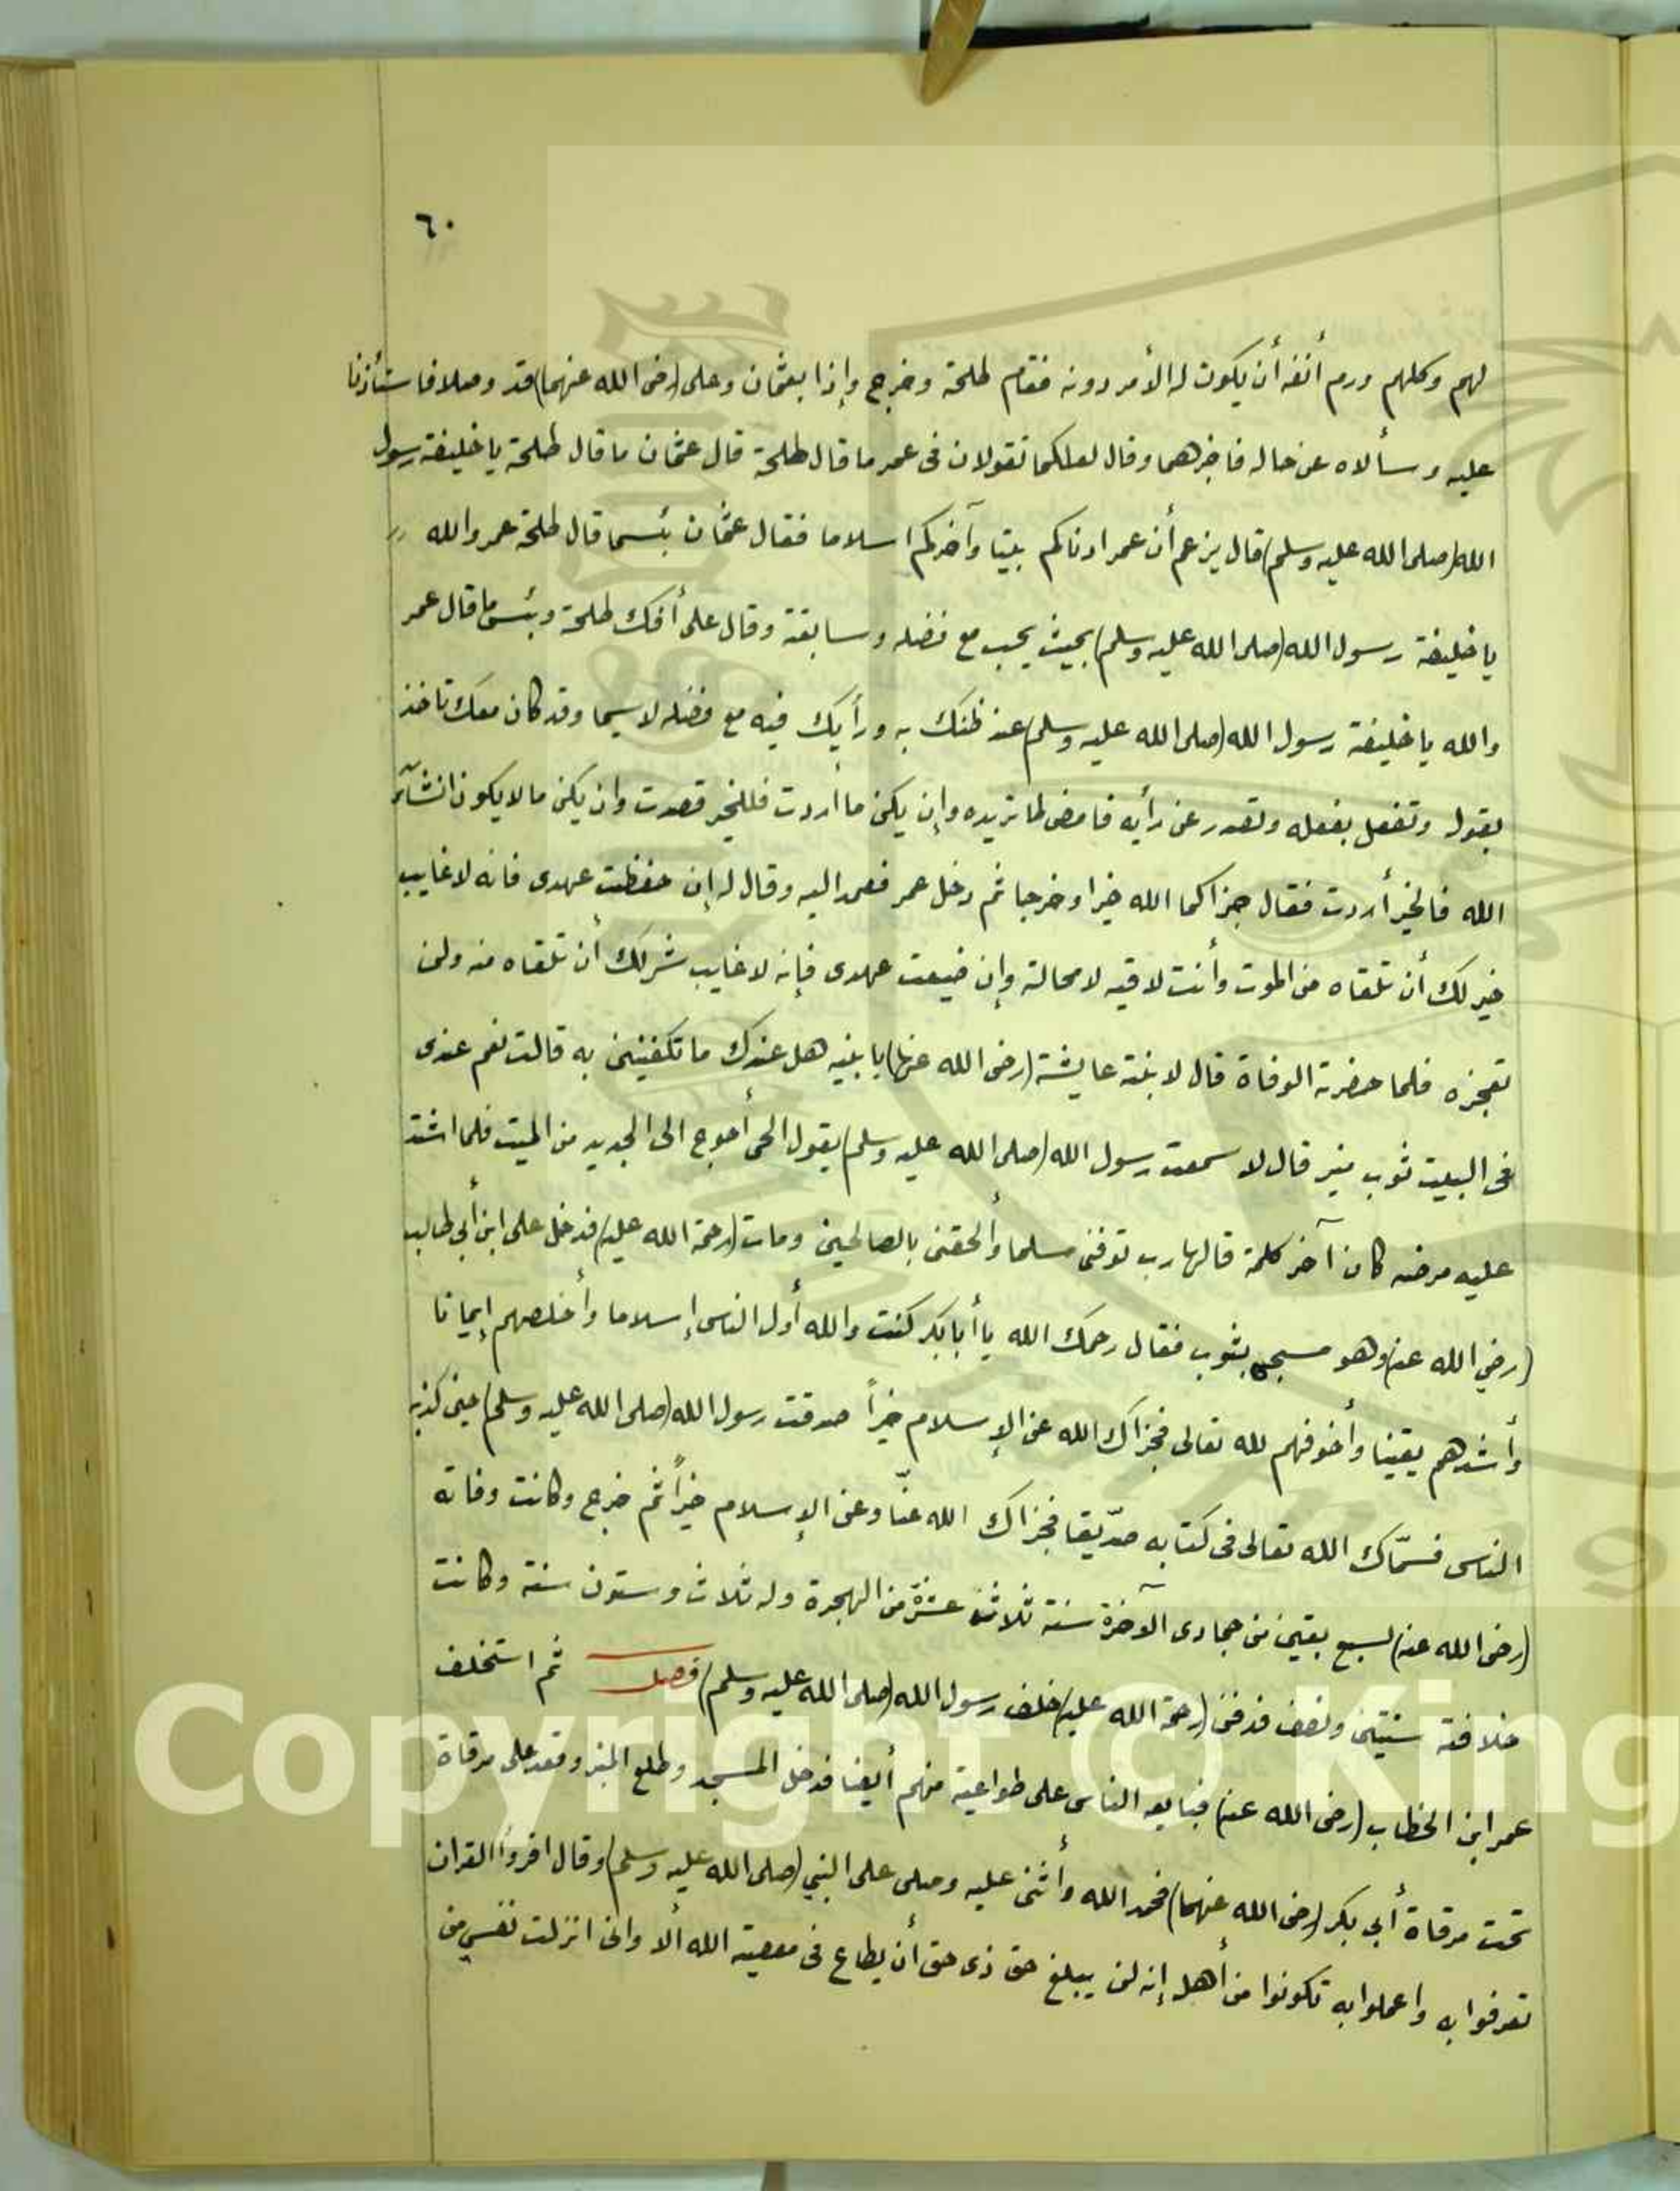 ٦٠
لهم وكلهم ورم أنفه أن يكون له الأمر دونه فقام طلحة وخرج وإذا بعثمان وعلى (رضى الله عنهما) قد وصلا فاستأذنا
عليه وسألاه عن حاله فاخبرهما وقال لعلكما تقولان فى عمر ما قال طلحة قال عثمان ما قال طلحة يا خليفة رسول
الله (صلى الله عليه وسلم) قال يزعم أن عمر ادناكم بيتا وآخركم اسلاما فقال عثمان بئسما قال طلحة عمر والله
يا خليفة رسول الله (صلى الله عليه وسلم) بحيث يحب مع فضله وسابقته وقال على أفك طلحة وبئس ما قال عمر
والله يا خليفة رسول الله (صلى الله عليه وسلم) عند ظنك به ورأيك فيه مع فضله لاسيما وقد كان معك تاخذ
بقوله وتفعل بفعله وتصدر عن رأيه فامض لما تريده وإن يكن ما أردت فللخير قصدت وان يكن ما لا يكون انشآء
الله فالخير أردت فقال جزاكما الله خيرا وخرجا ثم دخل عمر فعمد اليه وقال له إن حفظت عهدى فانه لا غايب
خير لك أن تلقاه من الموت وأنت لاقيه لا محالة وإن ضيعت عهدى فإنه لا غايب شر لك أن تلقاه منه ولن
تعجزه فلما حضرته الوفاة قال لابنته عايشة (رضى الله عنها) يا بنيه هل عندك ما تكفنينى به قالت نعم عندى
فى البيت ثوب منير قال لا سمعت رسول الله (صلى الله عليه وسلم) يقول الحى أحوج الى الجديد من الميت فلما اشتد
عليه مرضه كان آخر كلمة قالها رب توفنى مسلما وألحقنى بالصالحين ومات (رحمة الله عليه) فدخل على ابن أبي طالب
(رضي الله عنه) وهو مسجى بثوب فقال رحمك الله يا أبا بكر كنت والله أول الناس إسلاما وأخلصهم إيمانا
وأشدهم يقينا وأخوفهم لله تعالى فجزاك الله عن الإسلام خيراً صدقت رسول الله (صلى الله عليه وسلم) حين كذبه
الناس فسمّاك الله تعالى فى كتابه صدّيقا فجزاك الله عنّا وعن الإسلام خيراً ثم خرج وكانت وفاته
(رضى الله عنه) لسبع بقين من جمادى الآخرة سنة ثلاث عشرة من الهجرة وله ثلاث وستون سنة وكانت
خلافته سنتين ونصف فدفن (رحمة الله عليه) خلف رسول الله (صلى الله عليه وسلم) فصل ثم استخلف
عمر ابن الخطاب (رضى الله عنه) فبايعه الناس على طواعية منهم أيضا فدخل المسجد وطلع المنبر وقعد على مرقاة
تحت مرقاة أبي بكر (رضى الله عنهما) فحمد الله وأثنى عليه وصلى على النبي (صلى الله عليه وسلم) وقال اقروا القران
تعرفوا به واعملوا به تكونوا من أهله إنه لن يبلغ حق ذى حق أن يطاع فى معصية الله ألا وانى انزلت نفسي من
Copyright © King